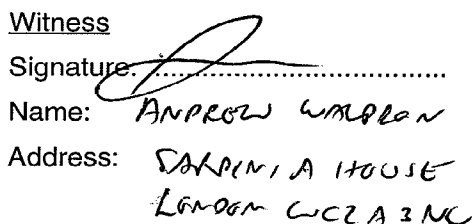 Witness
Signature: ........................................
Name: ANDREW WALDRON
Address: SARDINIA HOUSE
LONDON WC2A 3NC